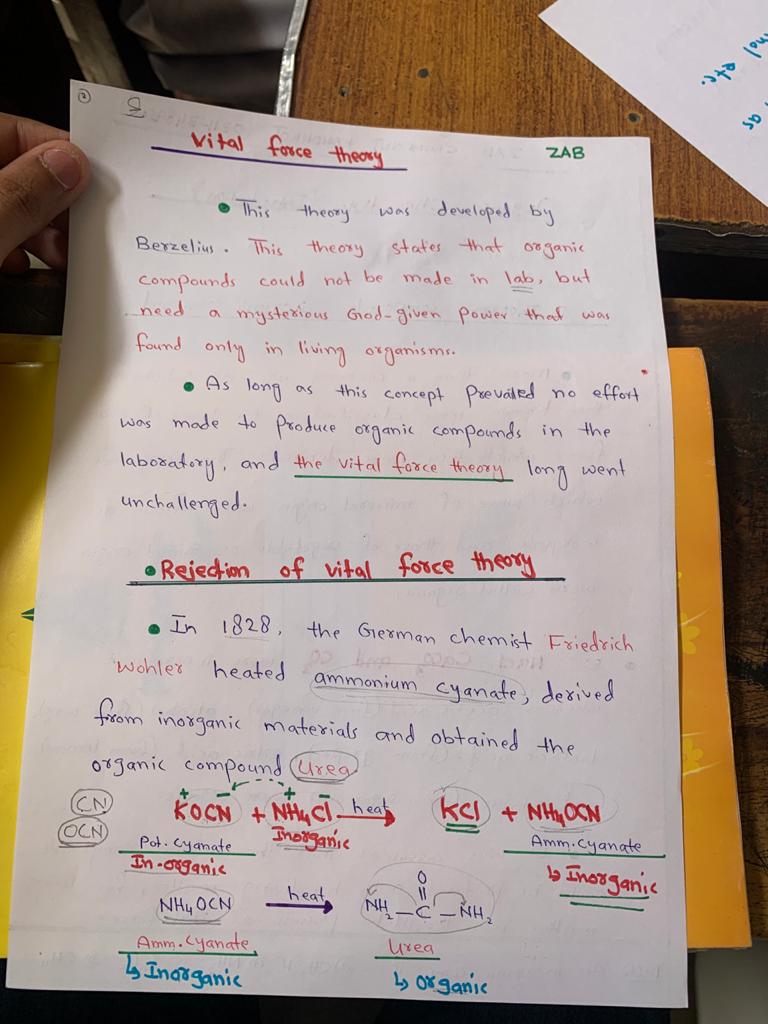 ②
Vital force theory
ZAB
• This theory was developed by
Berzelius. This theory states that organic
compounds could not be made in lab, but
need a mysterious God-given power that was
found only in living organisms.
• As long as this concept prevailed no effort
was made to produce organic compounds in the
laboratory, and the vital force theory long went
unchallenged.
• Rejection of vital force theory
• In 1828, the German chemist Friedrich
Wohler heated ammonium cyanate, derived
from inorganic materials and obtained the
organic compound Urea.
CN
OCN
+ - + -
KOCN + NH4Cl heat→ KCl + NH4OCN
Pot. cyanate Inorganic Amm. cyanate
In-organic ↳ Inorganic
O
||
NH4OCN heat→ NH2–C–NH2
Amm. cyanate Urea
↳ Inorganic ↳ organic
etc.
as